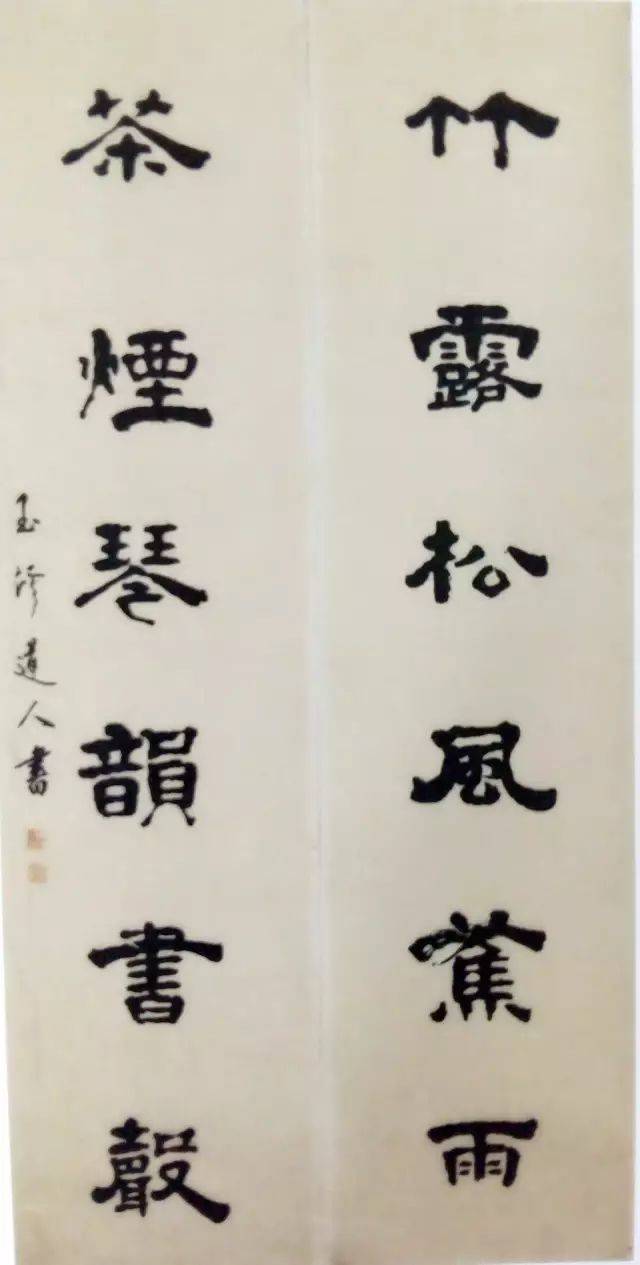 竹露松風蕉雨
茶煙琴韻書聲
道人書